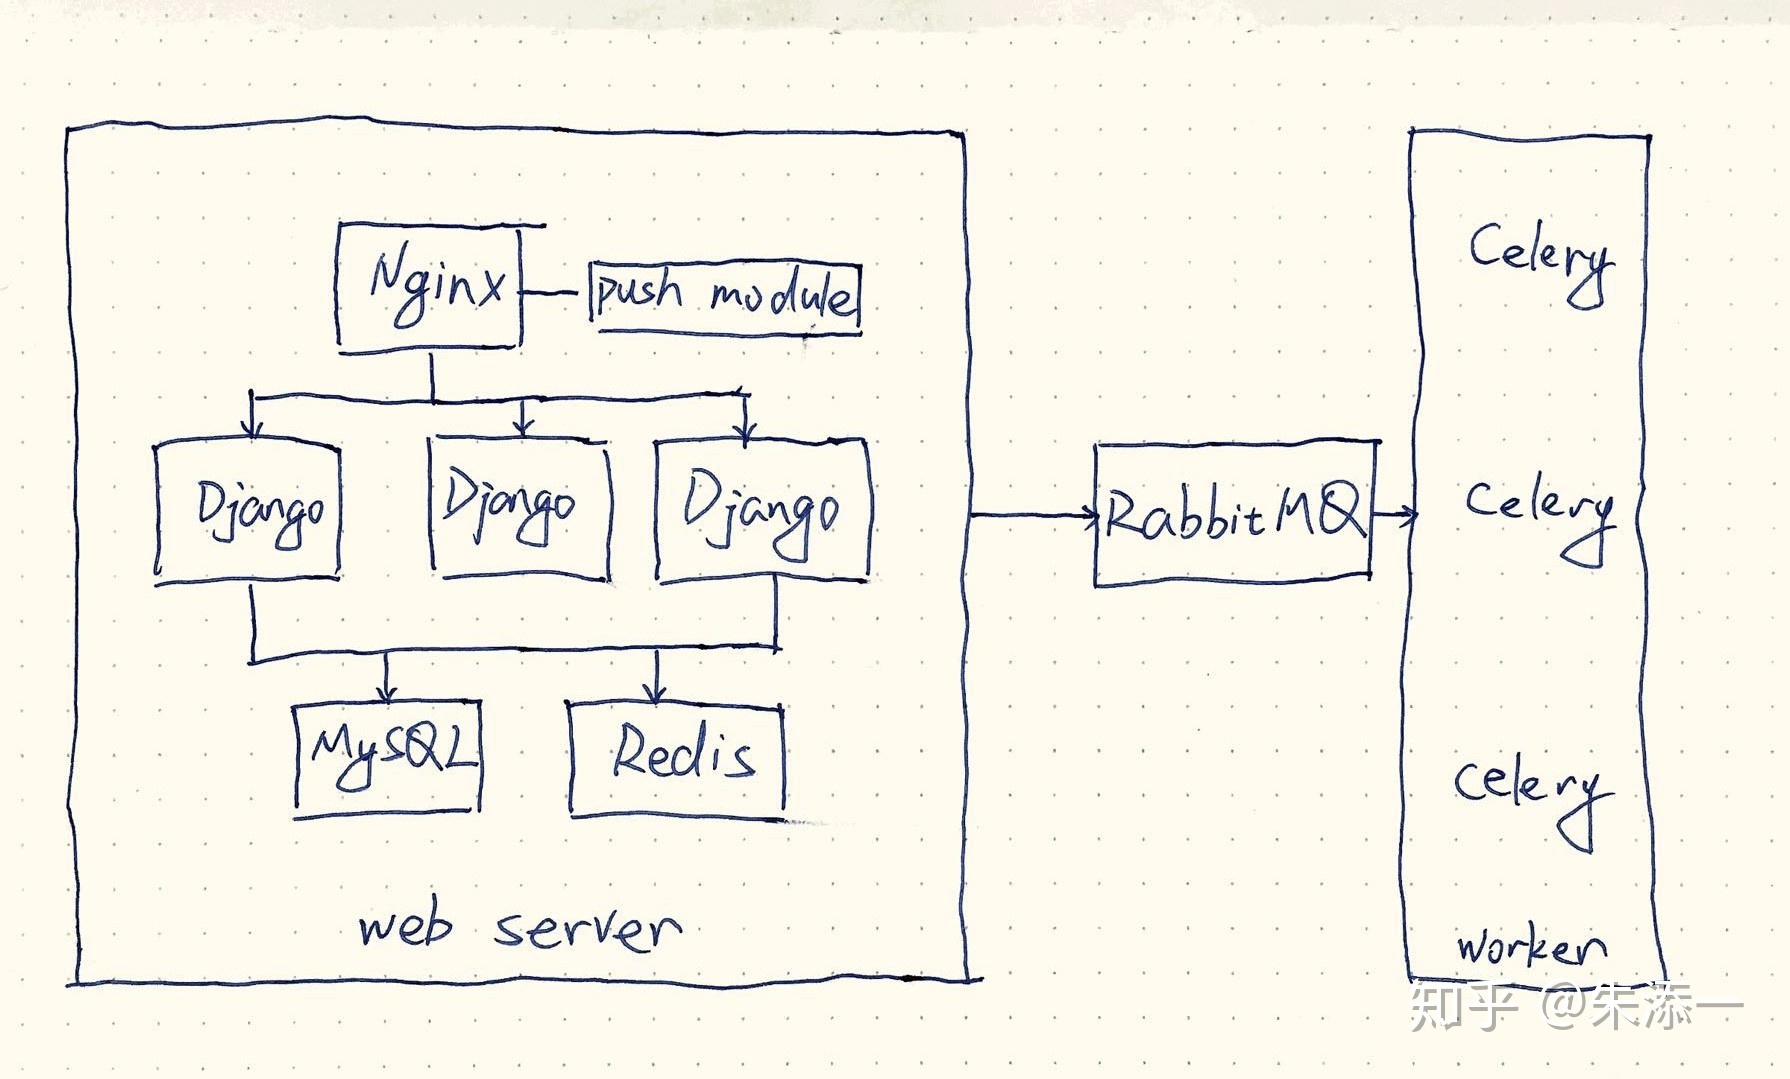 Nginx
push module
Django
Django
Django
MySQL
Redis
web server
RabbitMQ
Celery
Celery
Celery
worker
知乎 @朱添一